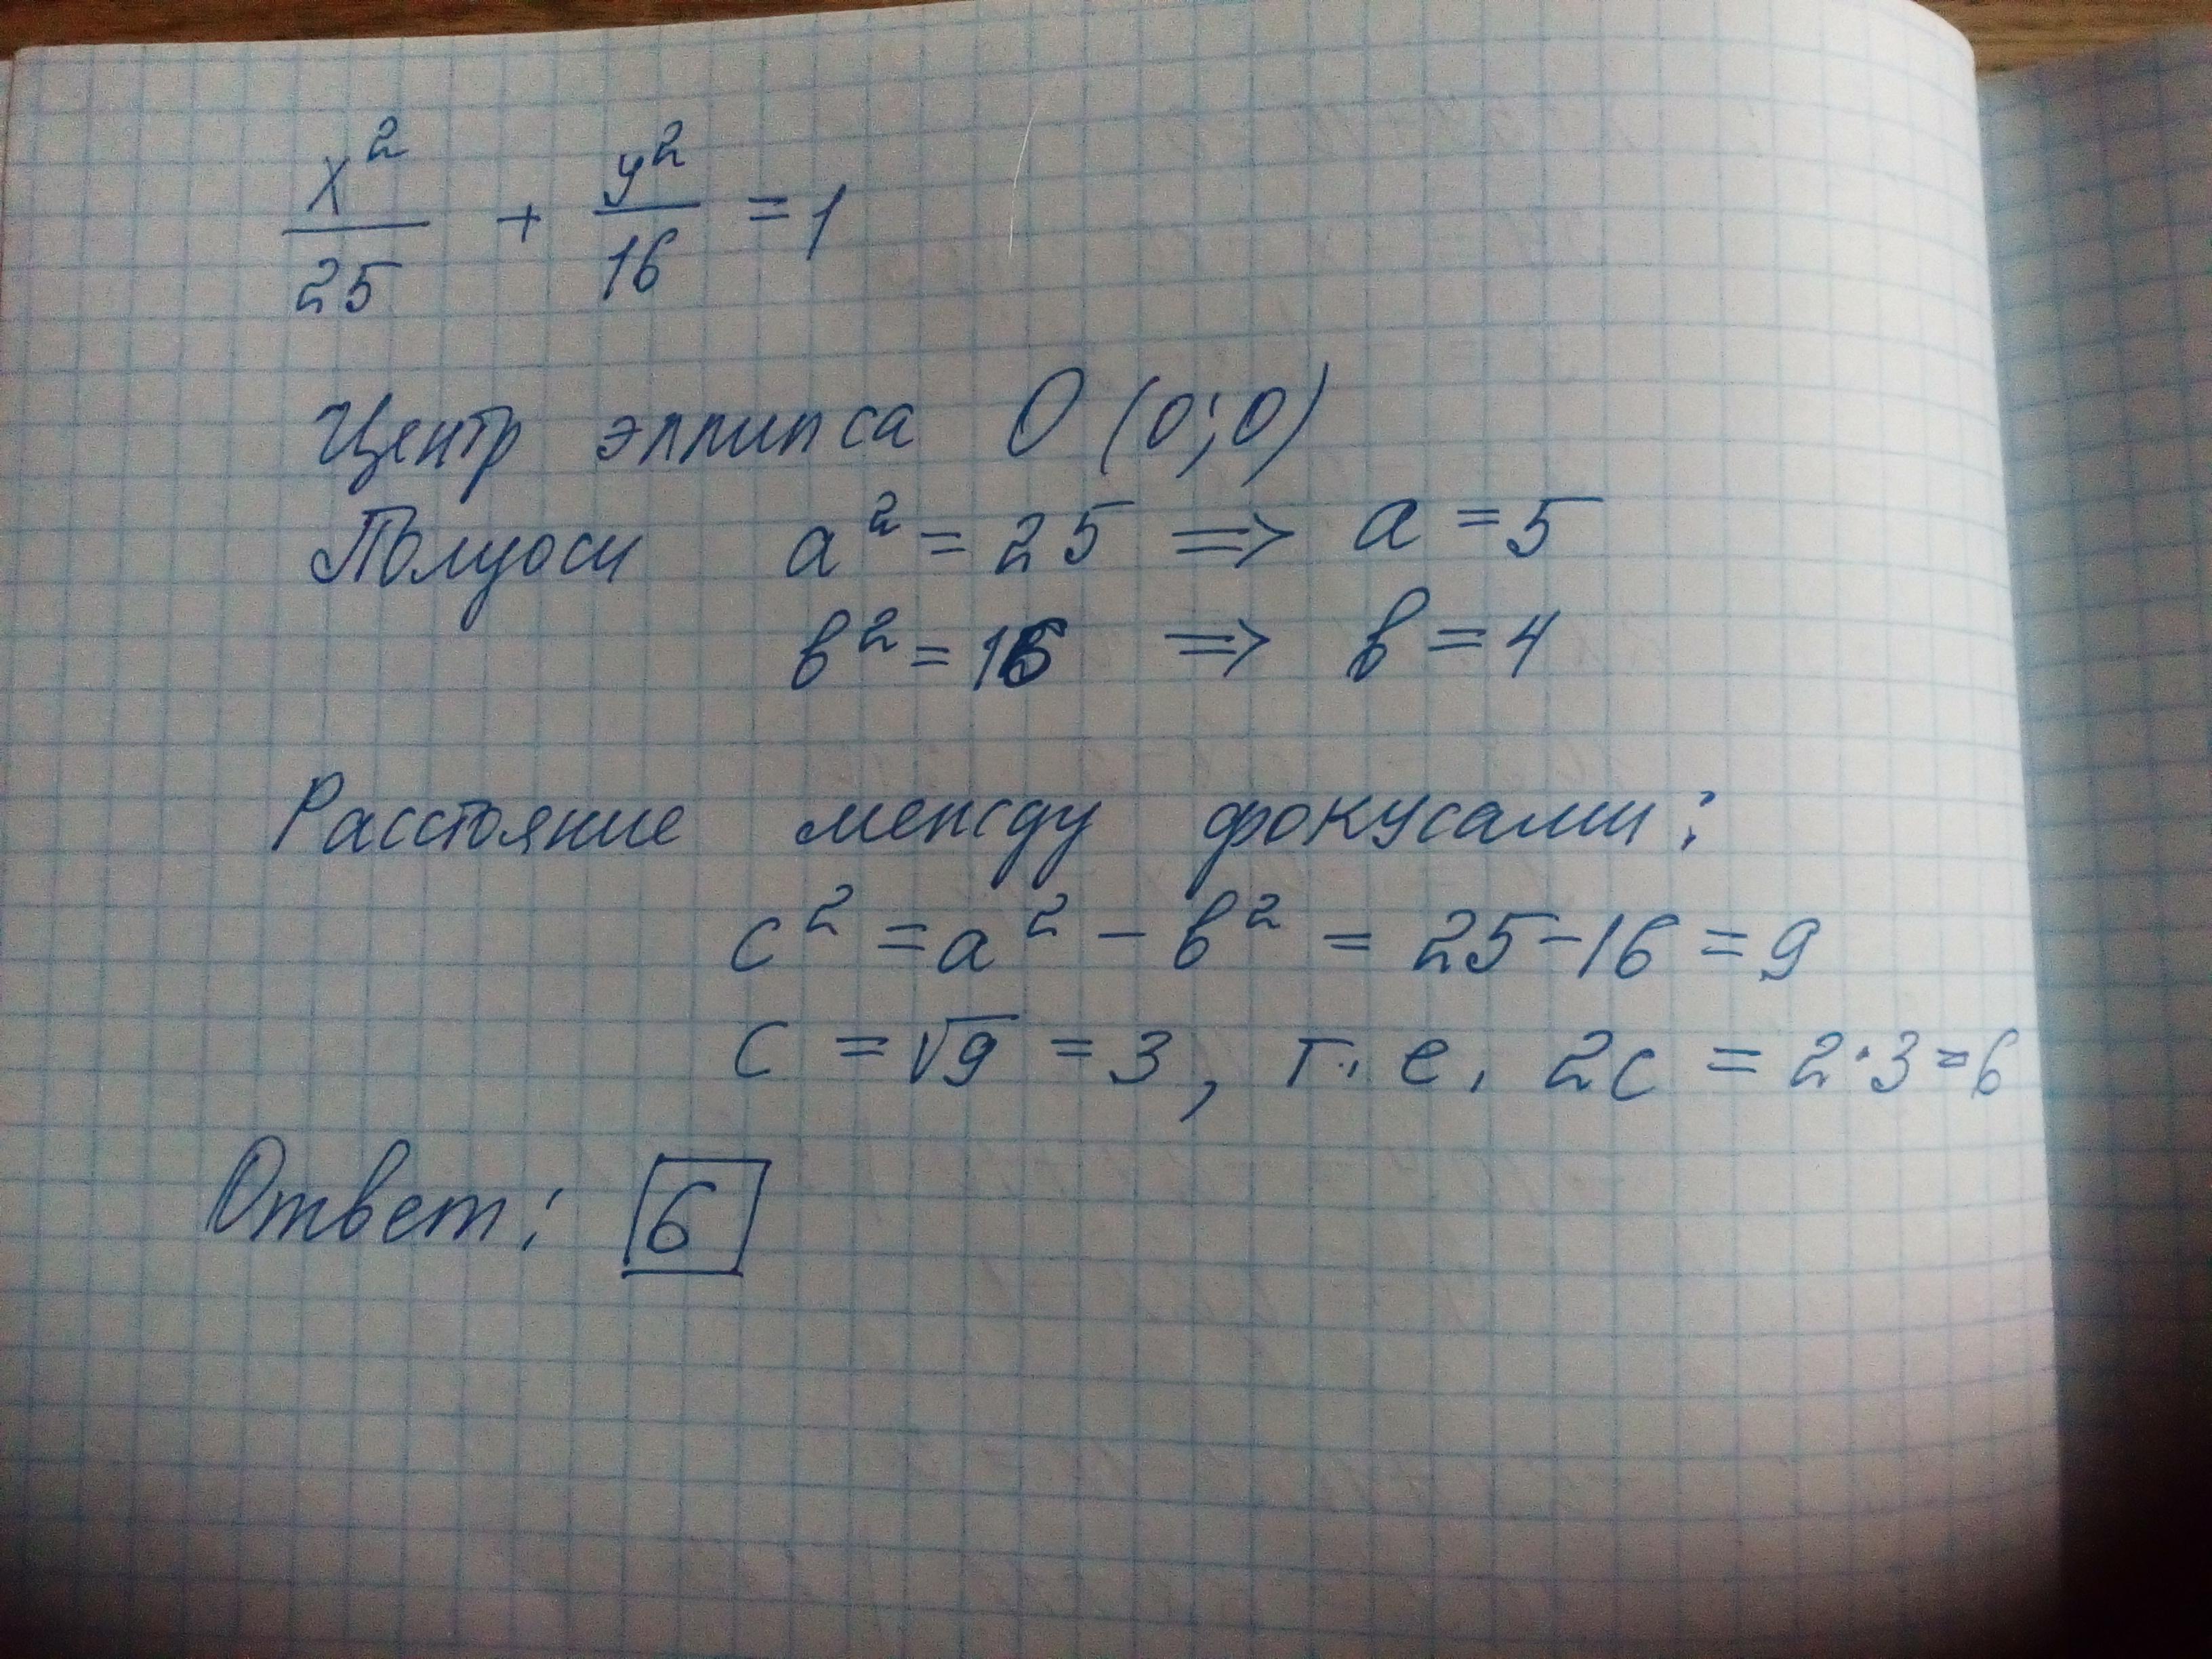 x²/25 + y²/16 = 1
Центр эллипса O (0;0)
Полуоси a² = 25 ⇒ a = 5
b² = 16 ⇒ b = 4
Расстояние между фокусами:
c² = a² - b² = 25 - 16 = 9
c = √9 = 3, т.е. 2c = 2·3 = 6
Ответ: 6